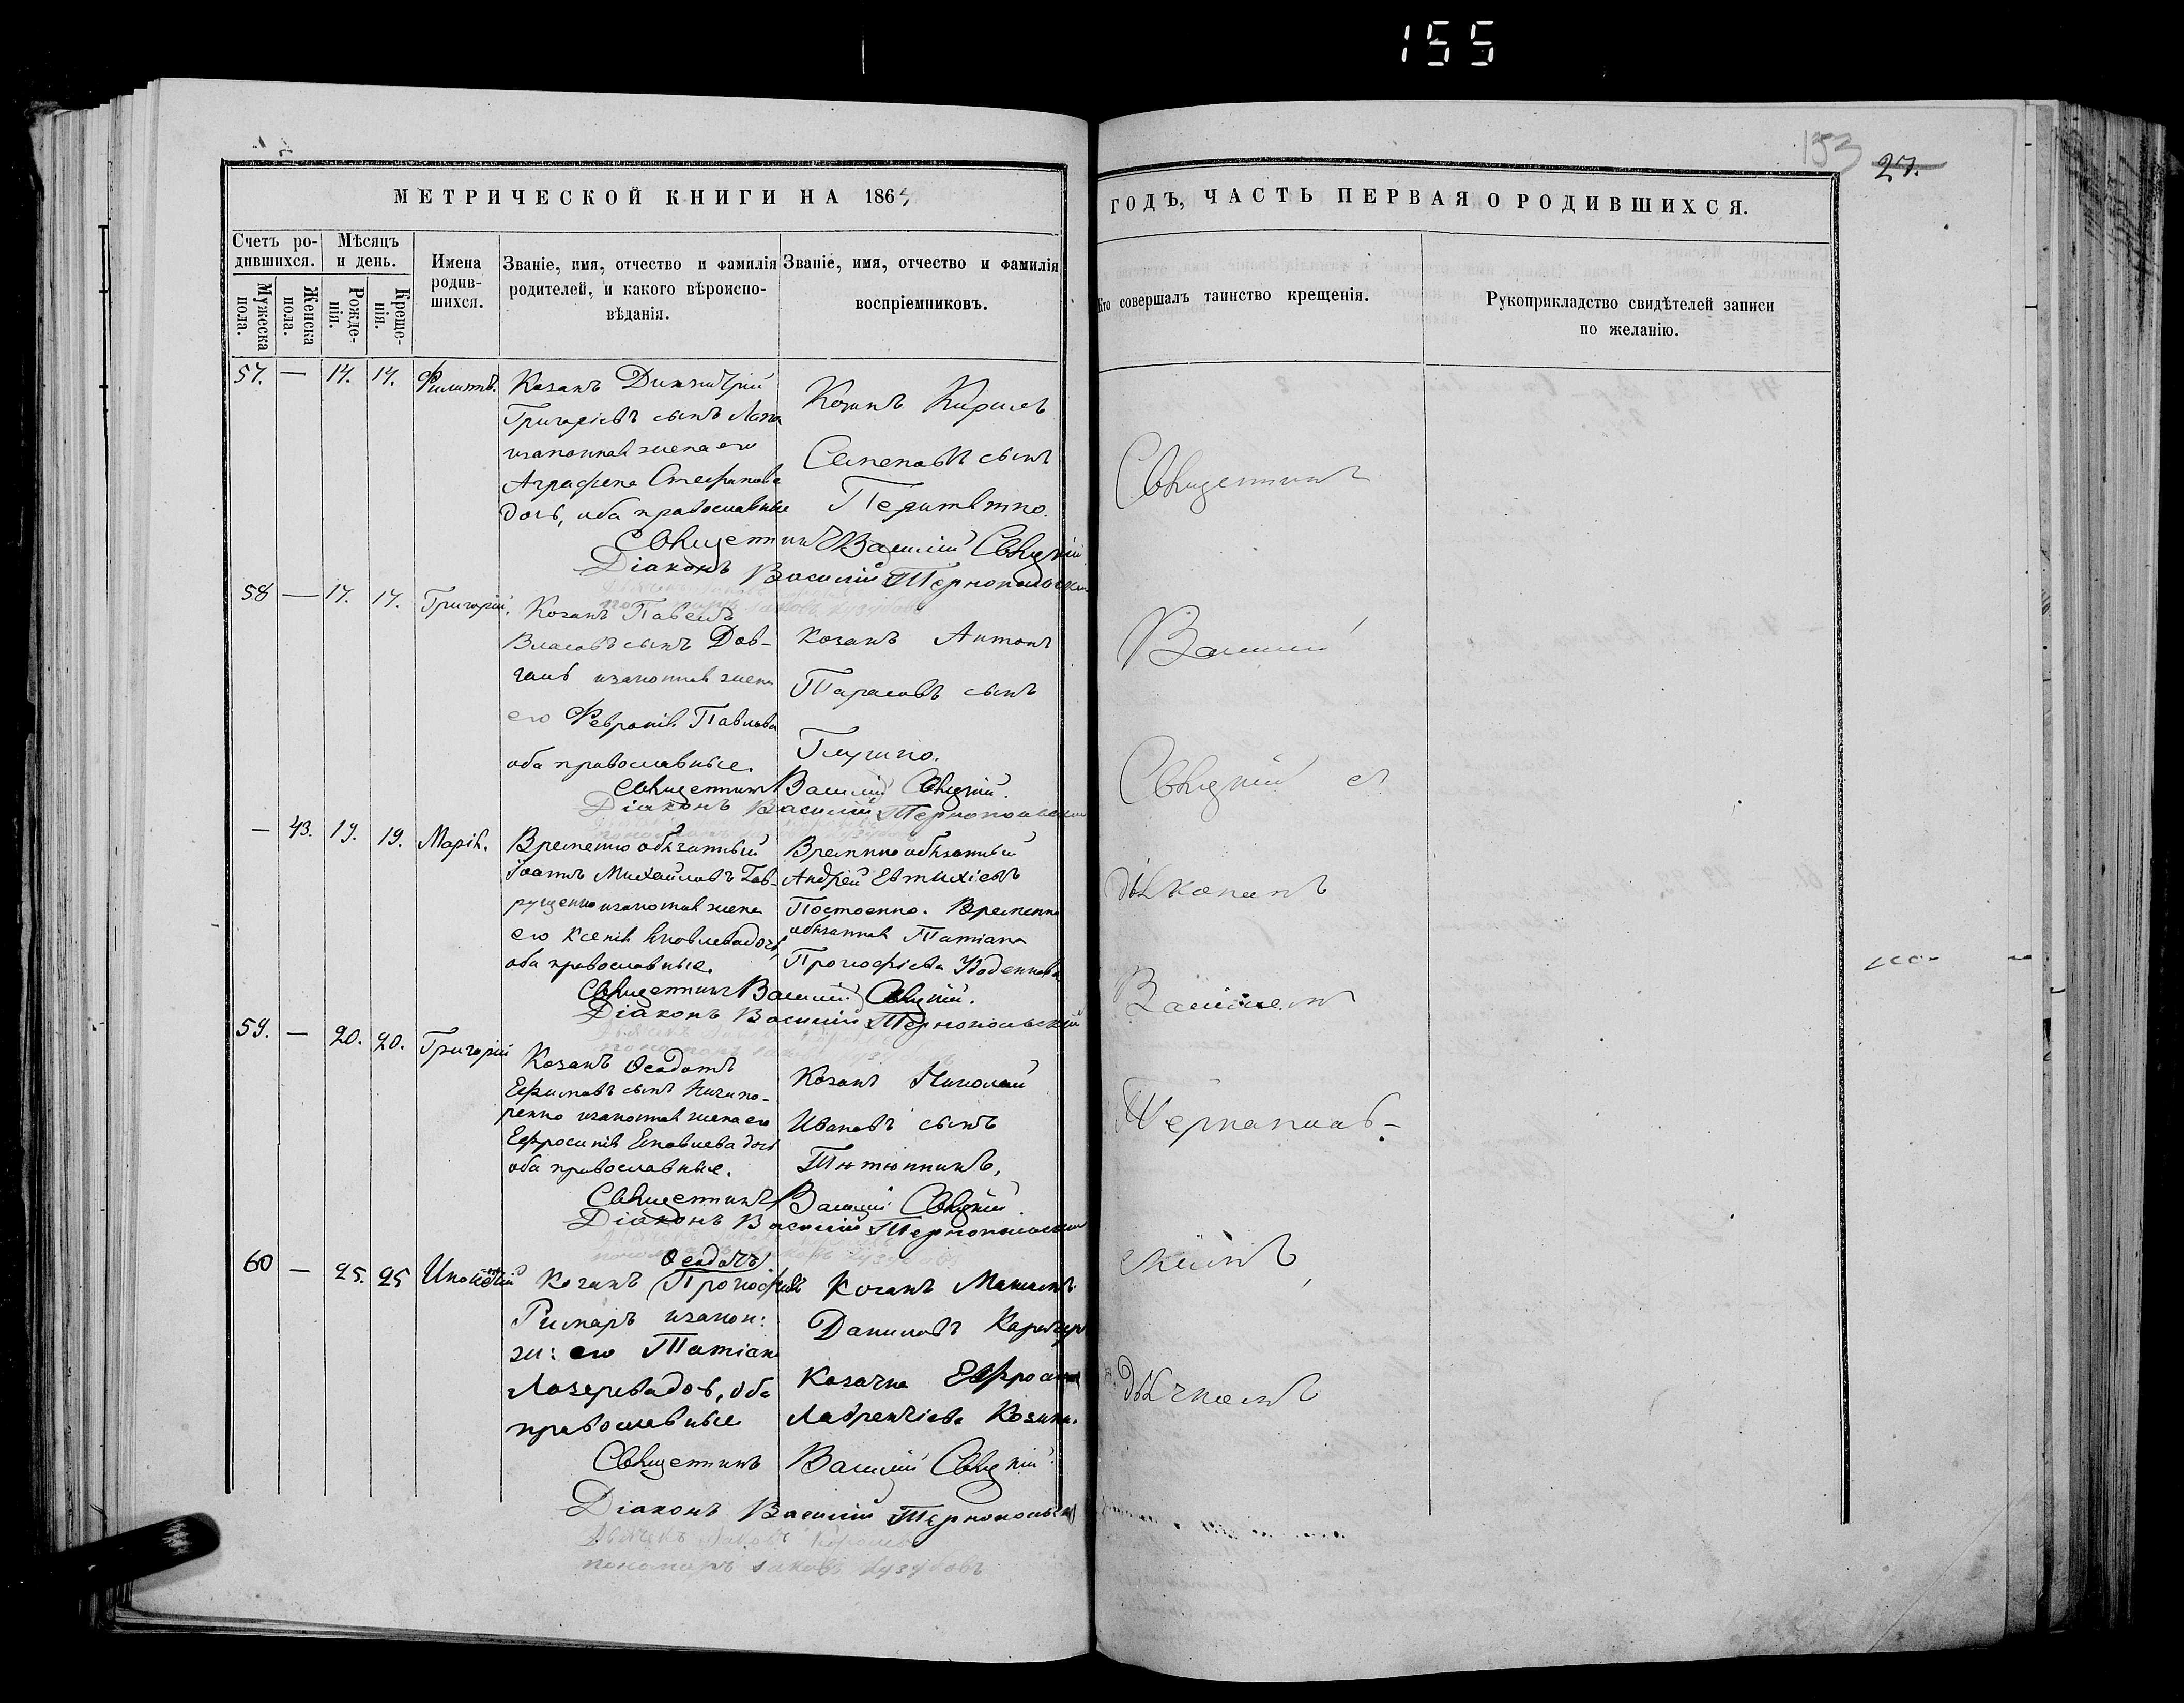 155
153
27.
МЕТРИЧЕСКОЙ КНИГИ НА 1864
ГОДЪ, ЧАСТЬ ПЕРВАЯ О РОДИВШИХСЯ.
Счетъ ро-
дившихся.
Мужеска
пола.
Женска
пола.
Мѣсяцъ
и день.
Рожде-
нія.
Креще-
нія.
Имена
родив-
шихся.
Званіе, имя, отчество и фамилія
родителей, и какого вѣроиспо-
вѣданія.
Званіе, имя, отчество и фамилія
воспріемниковъ.
Кто совершалъ таинство крещенія.
Рукоприкладство свидѣтелей записи
по желанію.
57. — 17. 17. Филиппъ.
Козакъ Димитрій
Григоріевъ сынъ
изаконная жена его
Аграфена Стефанова
дочь, оба православные
Козакъ Кирилъ
Семеновъ сынъ
Священникъ Василій Свѣцкій
Діаконъ Василій Тернопольскій
58 — 17. 17. Григорій.
Козакъ Павелъ
Власовъ сынъ Дов-
галь изаконная жена
его Февронія Павлова
оба православные.
Козакъ Антонъ
Тарасовъ сынъ
Священникъ Василій Свѣцкій.
Діаконъ Василій Тернопольскій
— 43. 19. 19. Марія.
Временно обязанный
Іоаннъ Михайловъ Гав-
рущенко изаконная жена
его Ксенія Яковлева дочь,
оба православные.
Временно обязанный
Андрей Евтихіевъ
Постоенко. Временно
обязанная Татіана
Прокофіева
Священникъ Василій Свѣцкій.
Діаконъ Василій Тернопольскій
59. — 20. 20. Григорій
Козакъ Ѳеодотъ
Ефимовъ сынъ Ничипо-
ренко изаконная жена его
Ефросинія Яковлева дочь
оба православные.
Козакъ Николай
Ивановъ сынъ
Тютюнникъ,
Священникъ Василій Свѣцкій.
Діаконъ Василій Тернопольскій
60 — 25. 25 Инокентій
Ѳеодотъ
Козакъ Прокофій
Римаръ изакон:
ж: его Татіана
Лазарева доч, оба
православные
Козакъ Максимъ
Даниловъ
Козачка Евфросинія
Лаврентіева
Священникъ Василій Свѣцкій.
Діаконъ Василій Тернопольскій
пономарь Іаковъ
Священникъ
Василій
Свѣцкій съ
діякономъ
Василіемъ
Тернополь-
скимъ
дьячкомъ